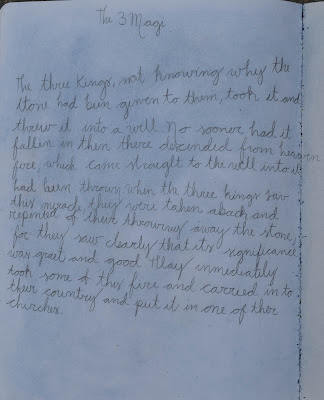 The 3 Magi
The three Kings, not knowing why the
stone had been given to them, took it and
threw it into a well. No sooner had it
fallen in then there decended from heaven
fire, which came straight to the well into it
had been thrown. when the three kings saw
this myracle, they were taken aback and
repented of their throwing away the stone,
for they saw clearly that its significance
was great and good. They immediately
took some of this fire and carried in to
their country and put it in one of ther
churches.